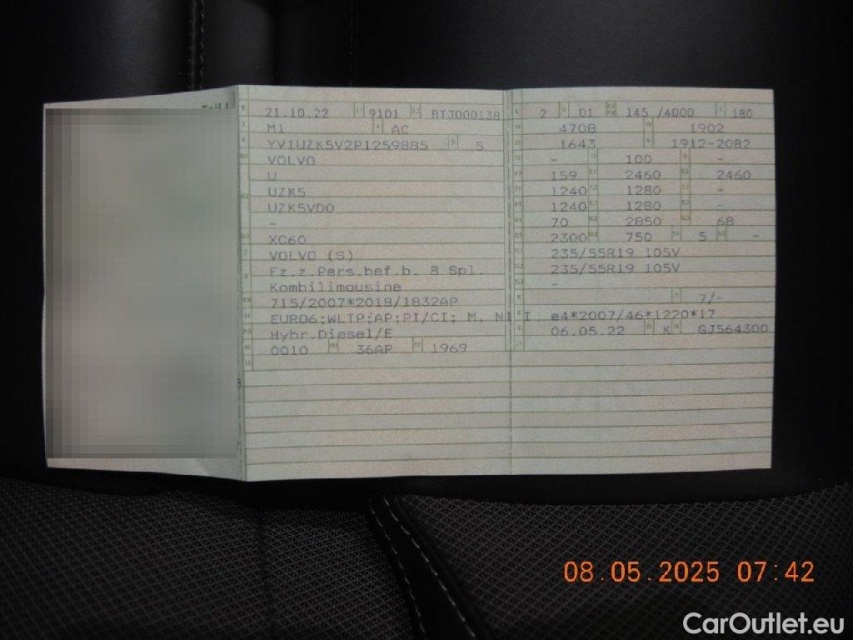 21.10.22 9101 BTJ000138
M1 AC
YV1UZK5V2P1259885 5
VOLVO
U
UZK5
UZK5VD0
-
XC60
VOLVO (S)
Fz.z.Pers.bef.b. 8 Spl.
Kombilimousine
715/2007*2018/1832AP
EURO6;WLTP;AP;PI/CI; M, N1 I
Hybr.Diesel/E
0010 36AP 1969
2 01 145 /4000 180
4708 1902
1643 1912-2082
- 100 -
159 2460 2460
1240 1280 -
1240 1280 -
70 2850 68
2300 750 5 -
235/55R19 105V
235/55R19 105V
-
7/-
e4*2007/46*1220*17
06.05.22 K GJ564300
08.05.2025 07:42
CarOutlet.eu